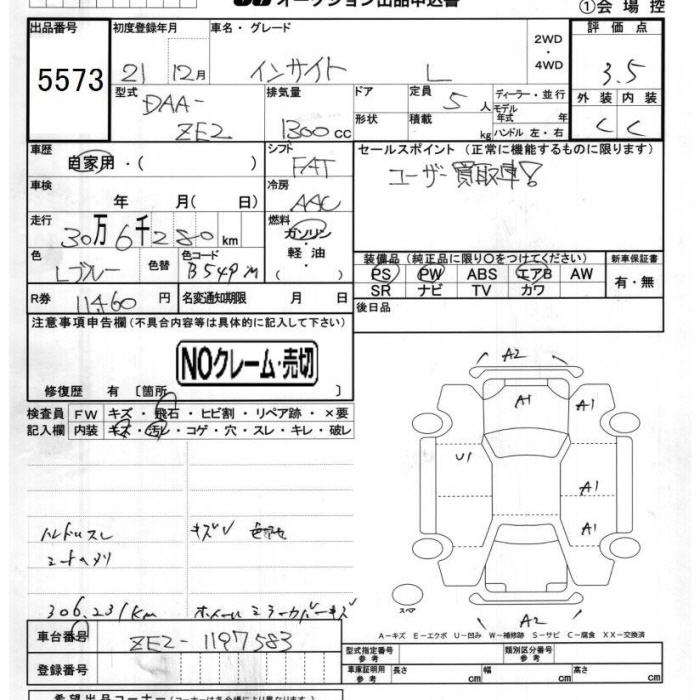 オークション出品申込書
①会場控
出品番号
5573
初度登録年月
21 12月
車名・グレード
インサイト L
2WD
・
4WD
評価点
3.5
型式
DAA-
ZE2
排気量
1300cc
ドア
形状
定員 5 人
積載 kg
ディーラー・並行
モデル年式 年
ハンドル 左・右
外装 内装
C C
車歴
自家用・( )
シフト
FAT
セールスポイント (正常に機能するものに限ります)
ユーザー買取車!
車検
年 月( 日)
冷房
AAC
走行
30万6千280km
燃料
ガソリン
・
軽油
( )
色
Lブルー
色替
色コード
B549M
装備品(純正品に限り○をつけてください)
新車保証書
PS PW ABS エアB AW
SR ナビ TV カワ
有・無
R券 11460 円
名変通知期限 月 日
後日品
注意事項申告欄(不具合内容等は具体的に記入して下さい)
NOクレーム・売切
修復歴 有 〔箇所 〕
検査員記入欄
FW キズ・飛石・ヒビ割・リペア跡・×要
内装 キズ・汚レ・コゲ・穴・スレ・キレ・破レ
ハンドルスレ
シートヘタリ
306,231km
ホイールミラーカバーキズ
A2
A1
A1
U1
A1
A1
A2
スペア
A－キズ E－エクボ U－凹み W－補修跡 S－サビ C－腐食 XX－交換済
車台番号
ZE2-1197583
登録番号
型式指定番号 参考
類別区分番号 参考
車庫証明用 参考
長さ cm
幅 cm
高さ cm
希望出品コーナー(コーナーは各会場により異なります)